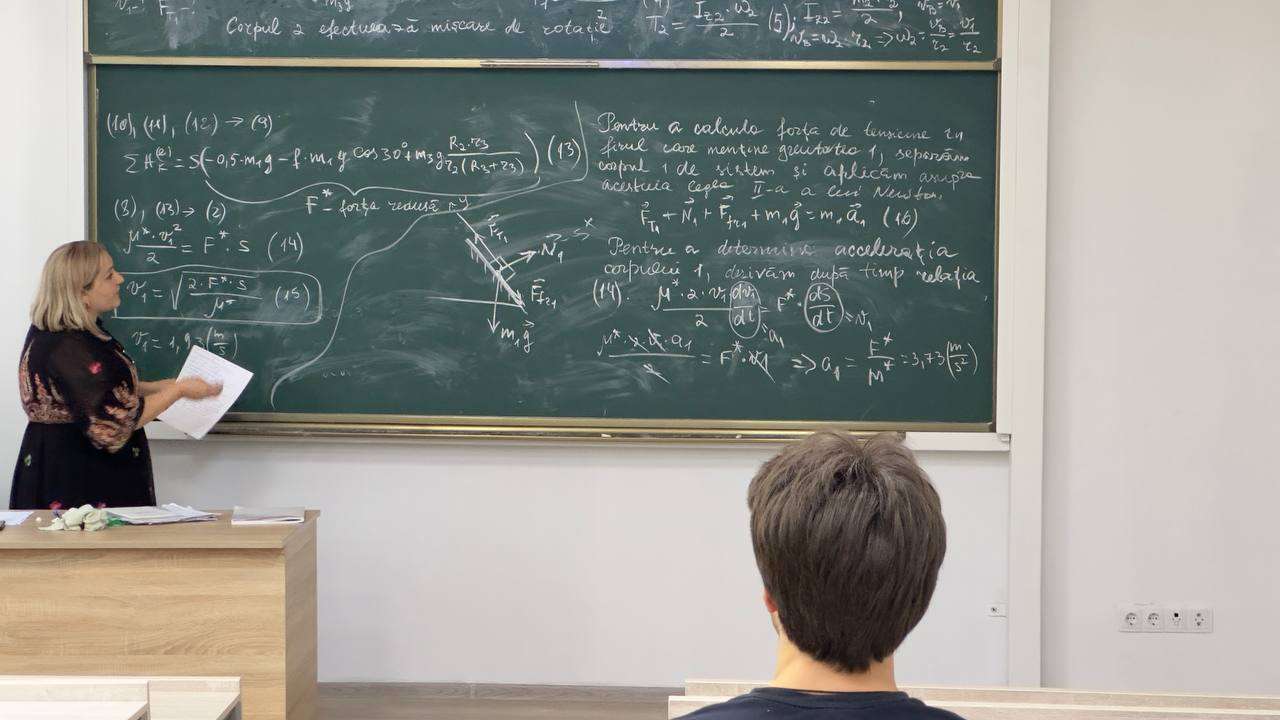 Corpul 2 efectuează mișcare de rotație
T₂ = I_z2·ω₂²/2 (5);
v_B = ω₂·r₂ => ω₂ = v_B/r₂ = v₁/r₂
(10), (11), (12) → (9)
ΣA_K^(e) = s(-0,5·m₁g - f·m₁g cos30° + m₃g R₂·r₃/r₂(R₃+r₃)) (13)
F* - forța redusă
(8), (13) → (2)
μ*·v₁²/2 = F*·s (14)
v₁ = √(2·F*·s/μ*) (15)
v₁ = 1,93 (m/s)
y
F⃗_T₁
N⃗₁
s
x
F⃗_fr₁
m₁g⃗
Pentru a calcula forța de tensiune în
firul care menține greutatea 1, separăm
corpul 1 de sistem și aplicăm asupra
acestuia legea II-a a lui Newton.
F⃗_T₁ + N⃗₁ + F⃗_fr₁ + m₁g⃗ = m₁a⃗₁ (16)
Pentru a determina accelerația
corpului 1, derivăm după timp relația
(14): μ*·2·v₁/2 dv₁/dt = F*·ds/dt = v₁
= a₁
μ*·2·v₁·a₁/2 = F*·v₁ => a₁ = F*/μ* = 3,73 (m/s²)